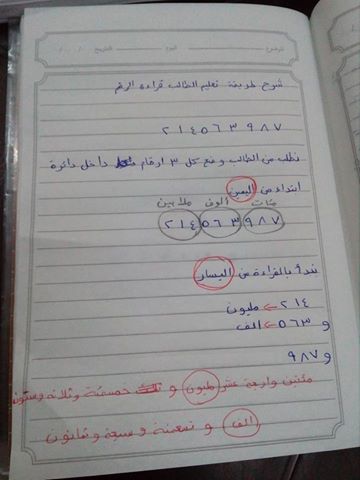 الموضوع: اليوم التاريخ / /
شرح طريقة تعليم الطالب قراءة الرقم
٢١٤٥٦٣٩٨٧
نطلب من الطالب وضع كل ٣ ارقام داخل دائرة
ابتداء من اليمين
مئات ألوف ملايين
٢١٤٥٦٣٩٨٧
نبدأ بالقراءة من اليسار
٢١٤ ← مليون
و ٥٦٣ ← الف
و ٩٨٧
مئتين واربعة عشر مليون و خمسمئة وثلاثة وستون
الف و تسعمئة وسبعة وثمانون